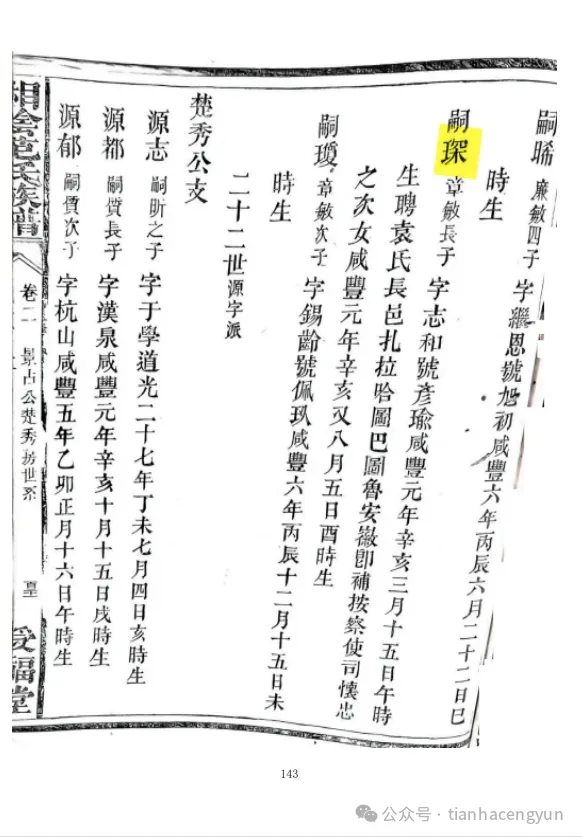 嗣晞 廉敏四子 字繼恩號旭初咸豐六年丙辰六月二十二日巳
時生
嗣琛 章敏長子 字志和號彥瑜咸豐元年辛亥三月十五日午時
生聘袁氏長邑扎拉哈圖巴圖魯安徽卽補按察使司懷忠
之次女咸豐元年辛亥又八月五日酉時生
嗣瓊 章敏次子 字錫齡號佩玖咸豐六年丙辰十二月十五日未
時生
二十二世源字派
楚秀公支
源志 嗣昕之子 字于學道光二十七年丁未七月四日亥時生
源都 嗣質長子 字漢泉咸豐元年辛亥十月十五日戌時生
源郁 嗣質次子 字杭山咸豐五年乙卯正月十六日午時生
湘陰范氏族譜
卷二
景占公楚秀房世系
受福堂
143
公众号 · tianhacengyun